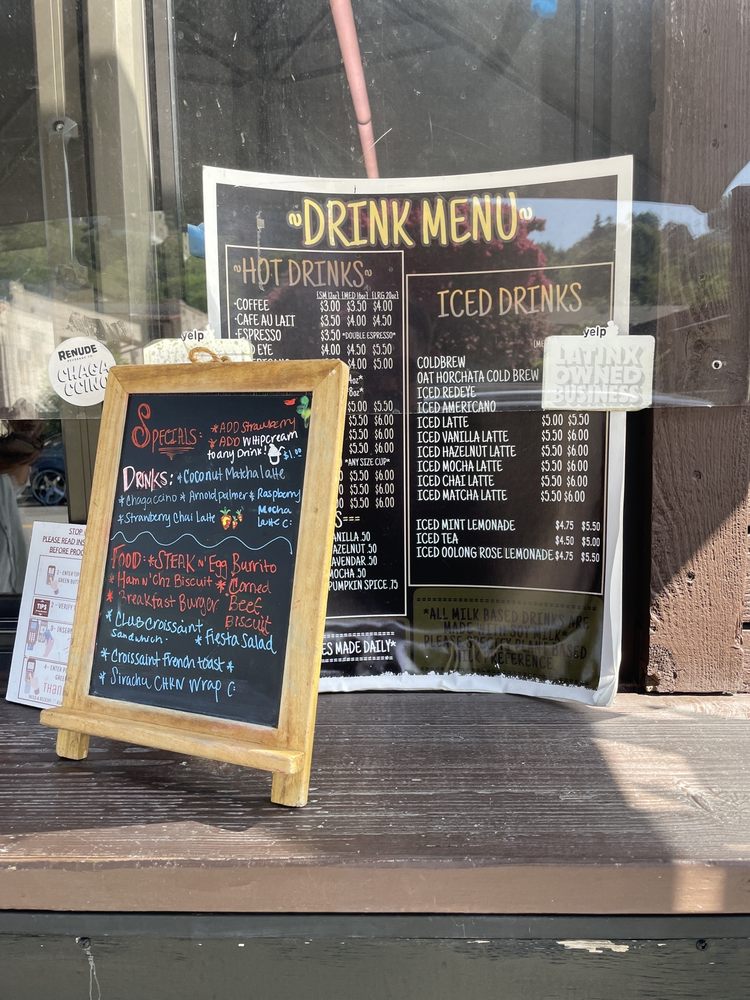 ~DRINK MENU~
~HOT DRINKS~
[SM 12oz] [MED 16oz] [LRG 20oz]
·COFFEE $3.00 $3.50 $4.00
·CAFE AU LAIT $3.50 $4.00 $4.50
·ESPRESSO $3.50 *DOUBLE ESPRESSO*
D EYE $4.00 $4.50 $5.50
$4.00 $5.00
8oz*
5.00 $5.50
5.50 $6.00
5.50 $6.00
5.50 $6.00
*ANY SIZE CUP*
5.50 $6.00
5.50 $6.00
5.50 $6.00
ANILLA .50
AZELNUT .50
AVENDAR .50
MOCHA .50
PUMPKIN SPICE .75
ES MADE DAILY*
ICED DRINKS
COLDBREW
OAT HORCHATA COLD BREW
ICED REDEYE
ICED AMERICANO
ICED LATTE $5.00 $5.50
ICED VANILLA LATTE $5.50 $6.00
ICED HAZELNUT LATTE $5.50 $6.00
ICED MOCHA LATTE $5.50 $6.00
ICED CHAI LATTE $5.50 $6.00
ICED MATCHA LATTE $5.50 $6.00
ICED MINT LEMONADE $4.75 $5.50
ICED TEA $4.50 $5.00
ICED OOLONG ROSE LEMONADE $4.75 $5.50
*ALL MILK BASED DRINKS ARE
MADE
PLEASE SPECIFY
PREFERENCE
yelp
LATINX
OWNED
BUSINESS
yelp
RENUDE
CHAGA
CCINO
Specials: *ADD Strawberry
*ADD WHIPCREAM
to any Drink! $1.00
DRINKS: *Coconut Matcha latte
*Chagaccino *Arnold palmer *Raspberry
Mocha
latte C:
*Strawberry Chai Latte
FOOD: *STEAK N' Egg Burrito
*Ham n' Chz Biscuit *Corned
Beef
Biscuit
*Breakfast Burger
*Club Croissant
Sandwich· *Fiesta Salad
*Croissant French toast*
*Siracha CHKN Wrap C:
STOP
PLEASE READ INS
BEFORE PROC
TIPS